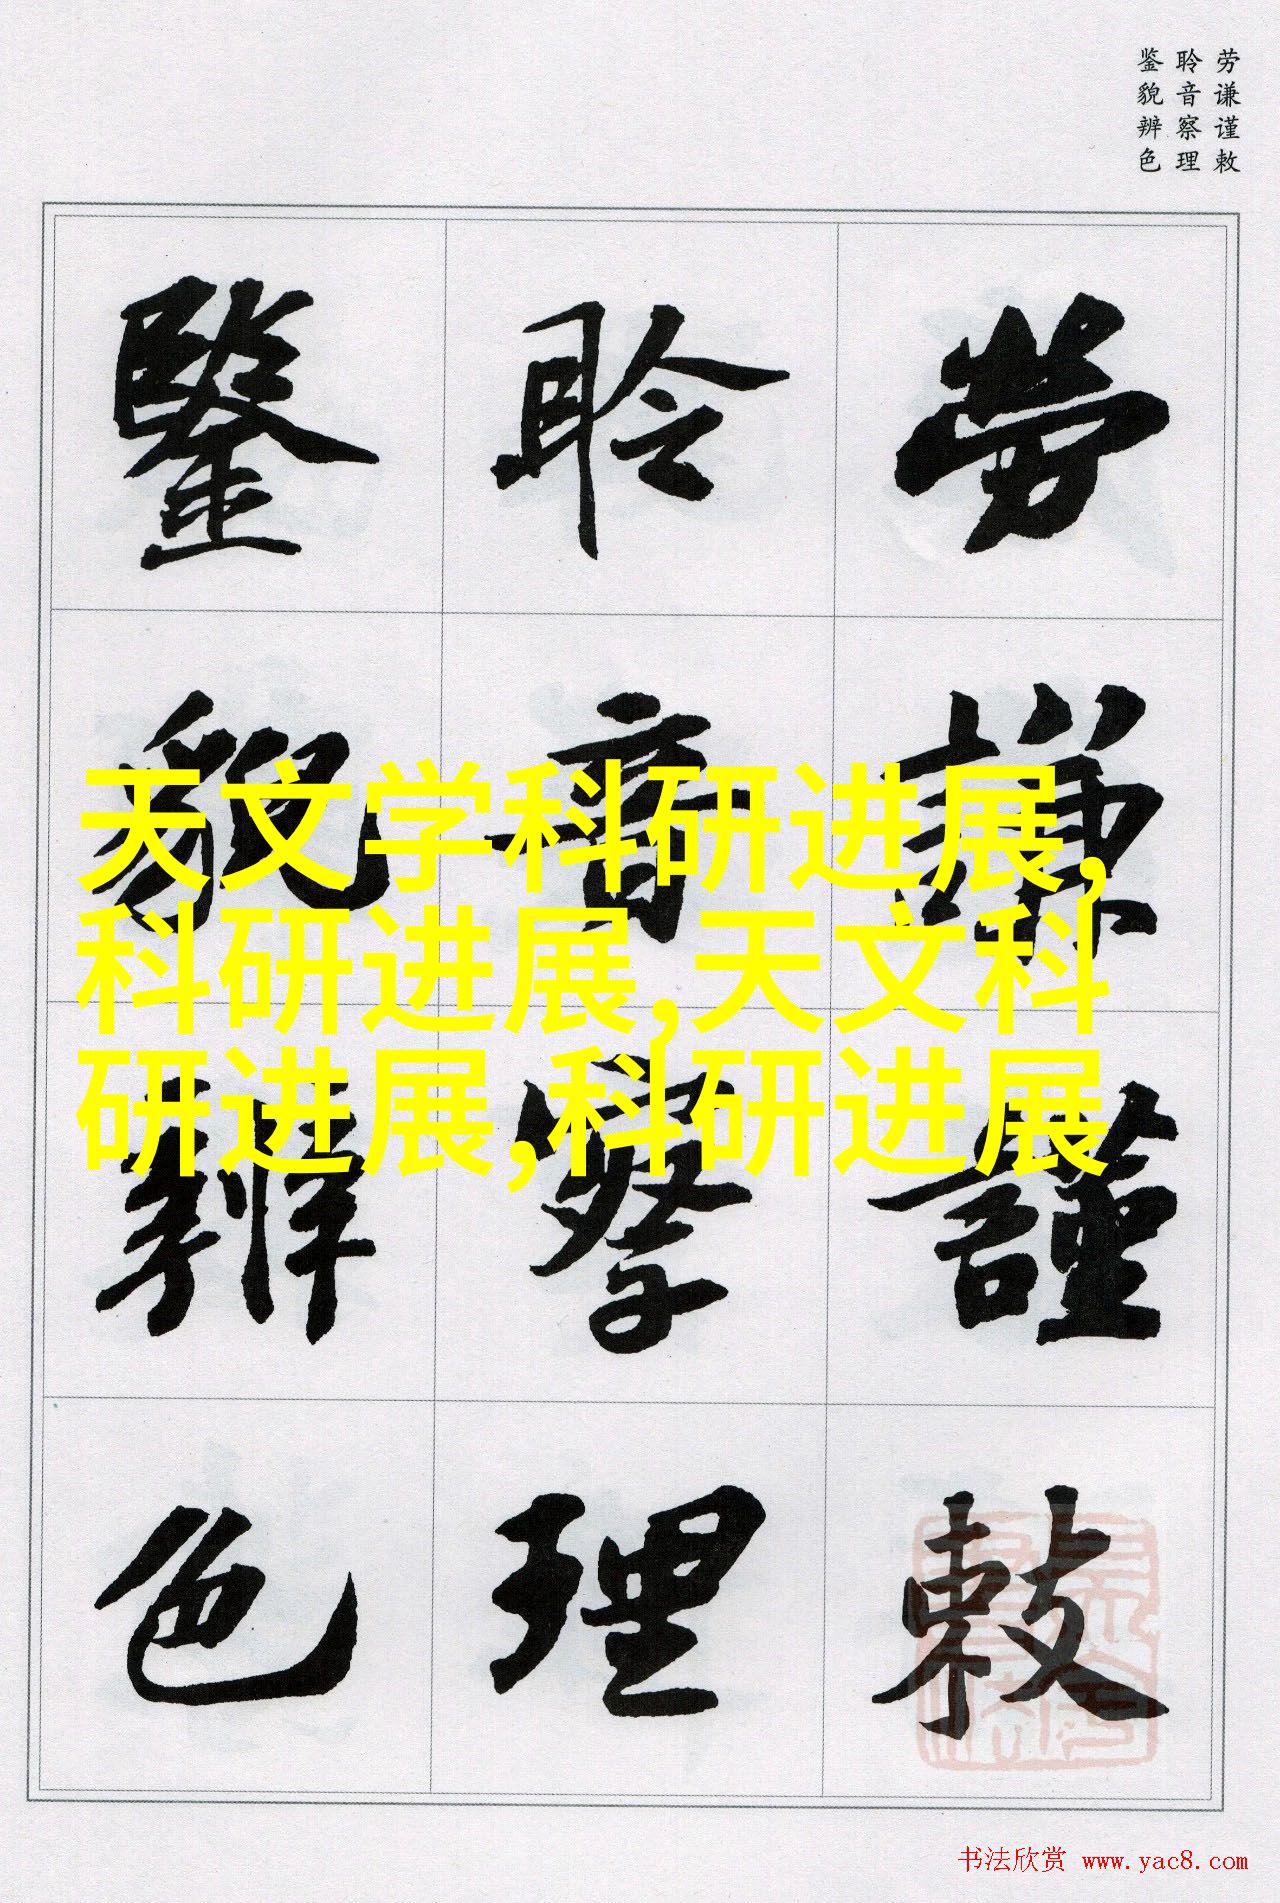 劳谦谨敕
聆音察理
鉴貌辨色
勞謙謹敕
聆音察理
鑒貌辨色
天文学科研进展,
科研进展,天文科
研进展,科研进展
书法欣赏 www.yac8.com